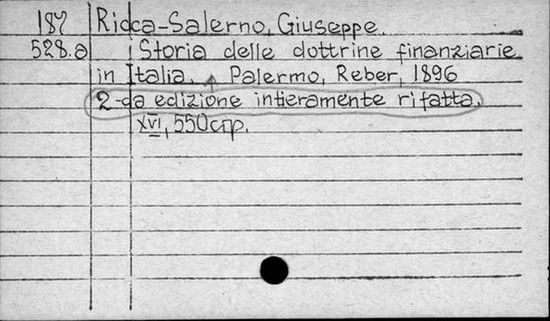 187 Ricca-Salerno, Giuseppe.
528.a Storia delle dottrine finanziarie
in Italia. Palermo, Reber, 1896
2-da edizione intieramente rifatta.
XVI, 550 стр.